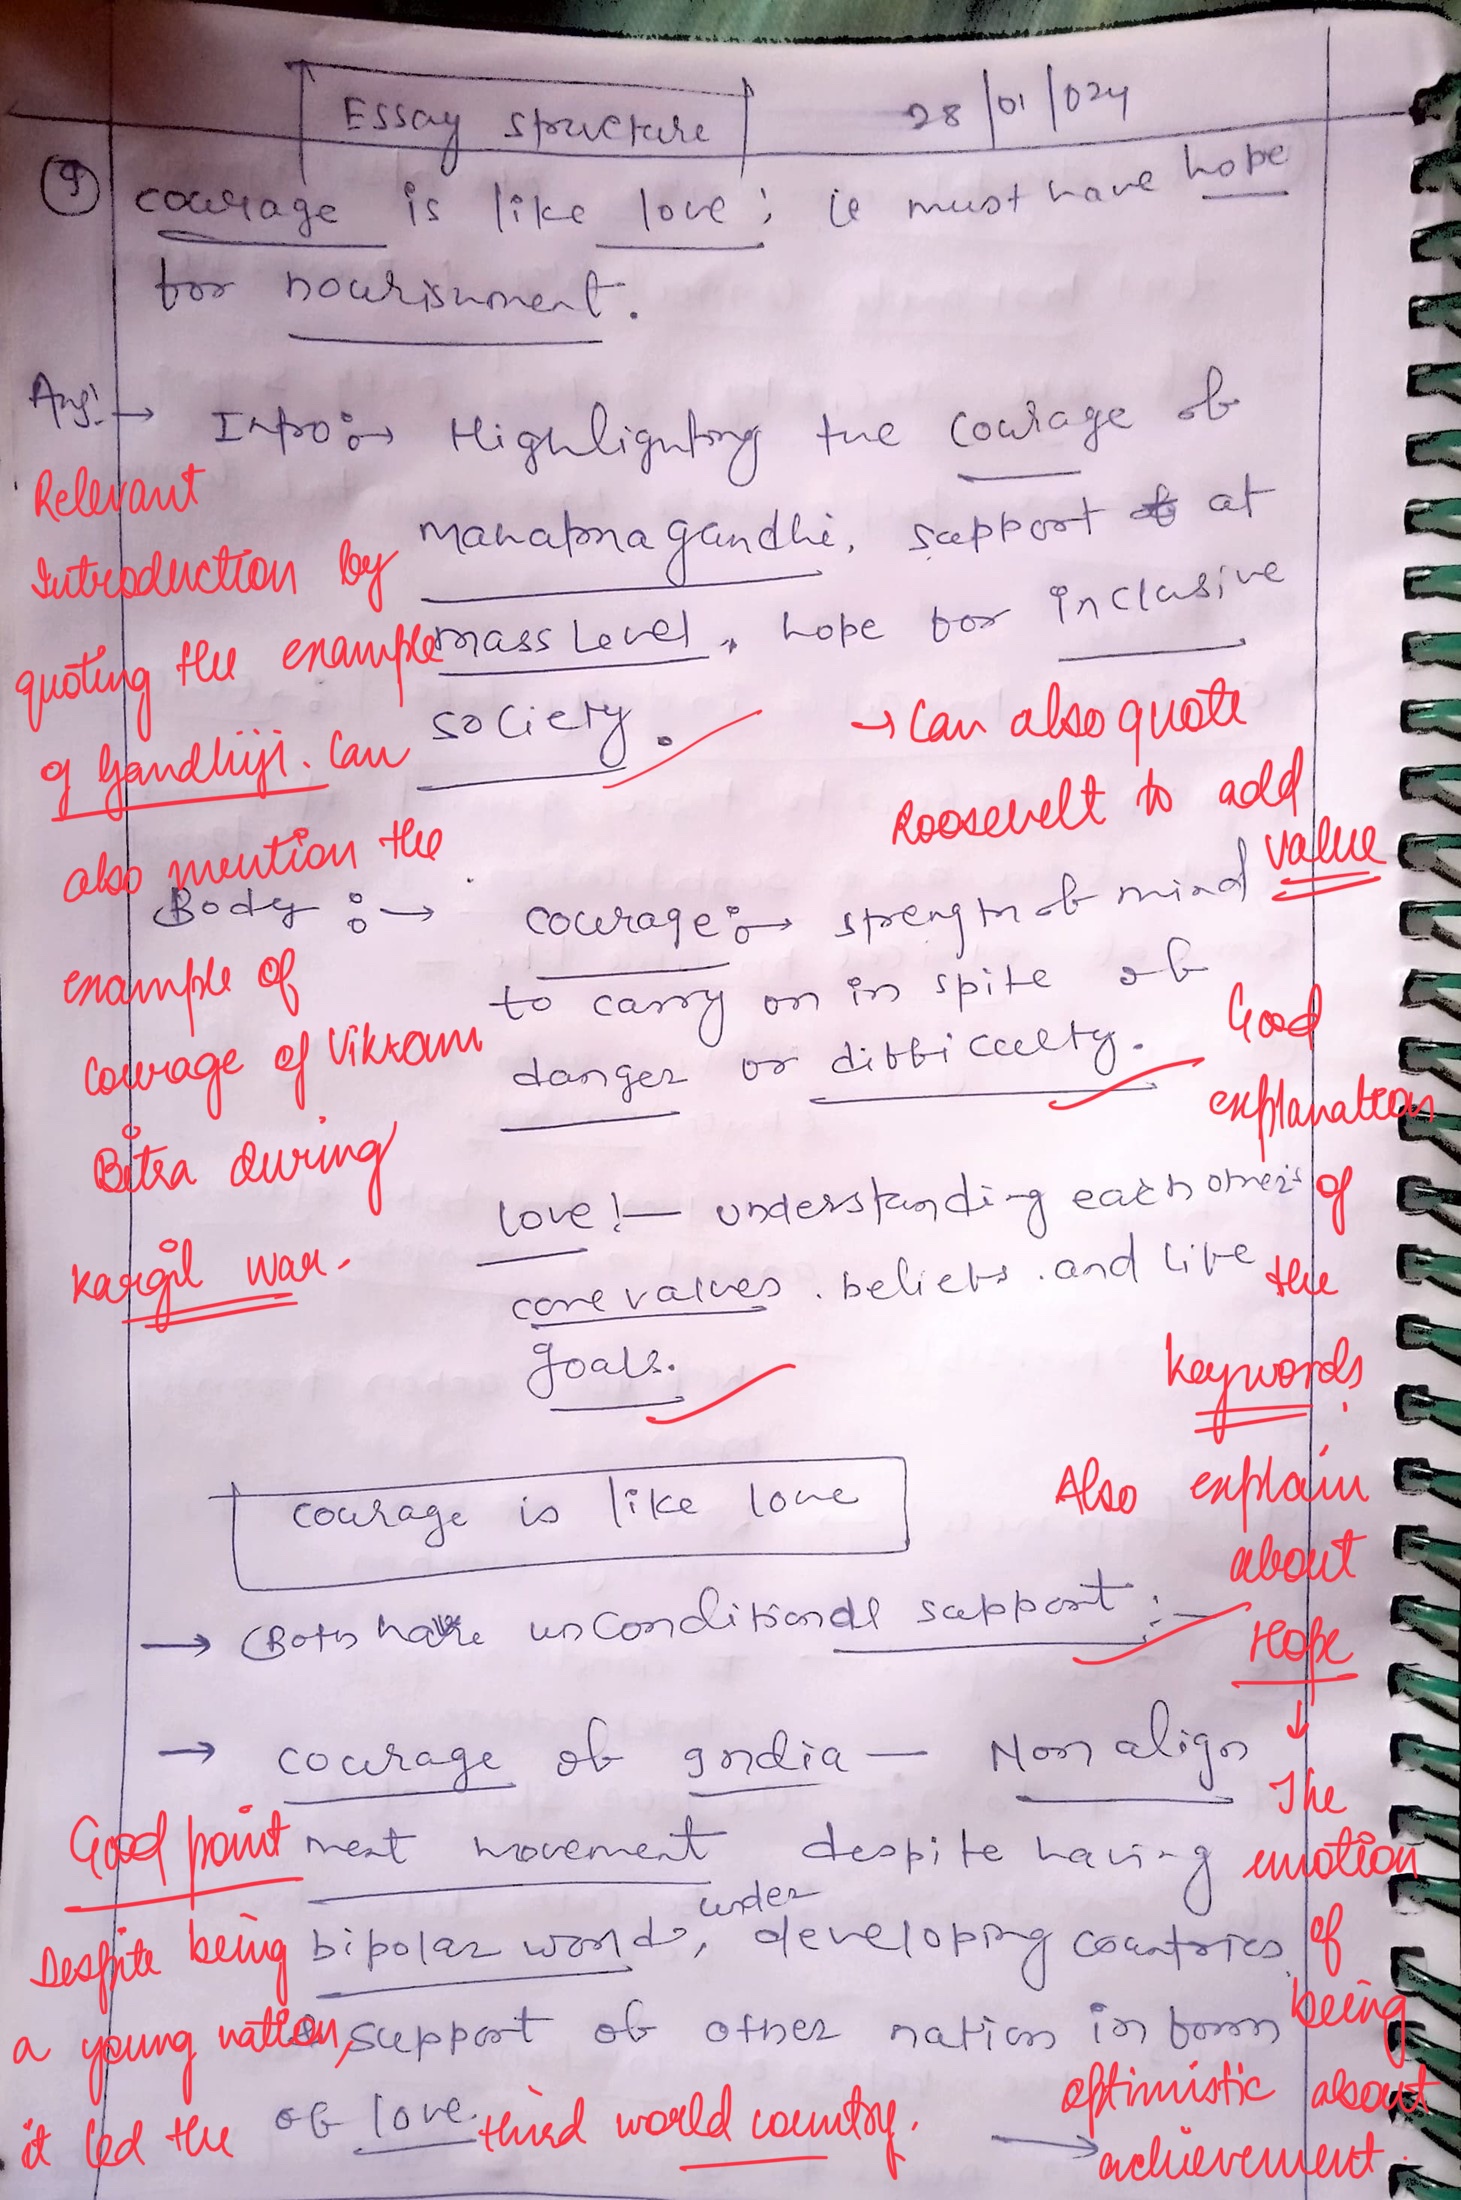 Essay structure
28/01/024
9 courage is like love; it must have hope
for nourishment.
Ans:→ Intro:→ Highlighting the courage of
mahatma gandhi, support at
mass level, hope for inclusive
society.
Relevant
Introduction by
quoting the example
of Gandhiji. Can
also mention the
example of
Courage of Vikram
Bitra during
Kargil war.
→ Can also quote
Roosevelt to add
value
Body :→ courage:→ strength of mind
to carry on in spite of
danger or difficulty.
love!— understanding each other's
core values. beliefs. and life
goals.
Good
explanation
of
the
keywords.
courage is like love
→ Both have unconditional support.
Also explain
about
Hope
↓
The
emotion
of
being
optimistic about
achievement.
→ courage of India — Non align
ment movement despite having
bipolar world, under developing countries
support of other nation in form
of love.
Good point
Despite being
a young nation,
it led the third world country.
→